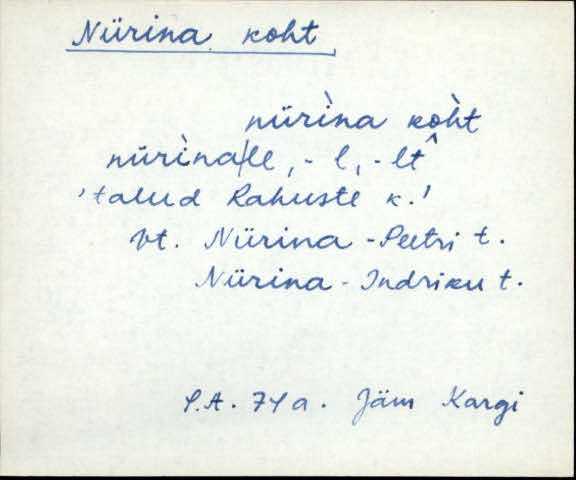 Nürina koht
nürìna kòh̀t
nürìna|le, -l, -lt
'talud Rahuste k.'
Vt. Nürina-Peetri t.
Nürina-Indriku t.
Jäm Kargi